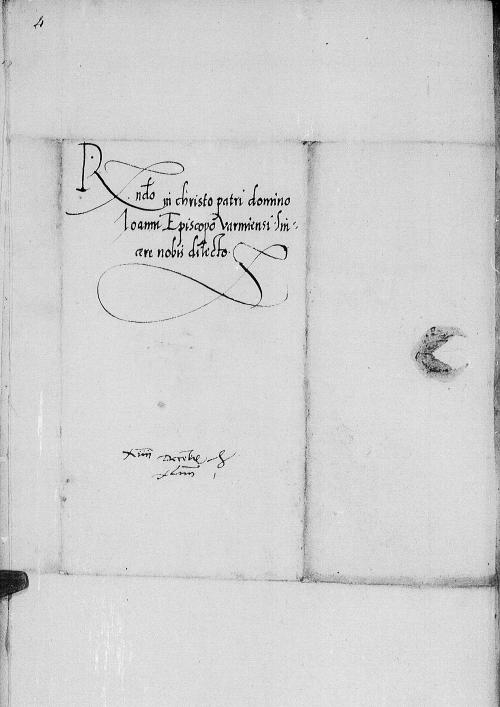 4
R.ndo in christo patri domino
Ioanni Episcopo Varmiensi sin-
cere nobis dilecto
xiiii decembr
xliiii